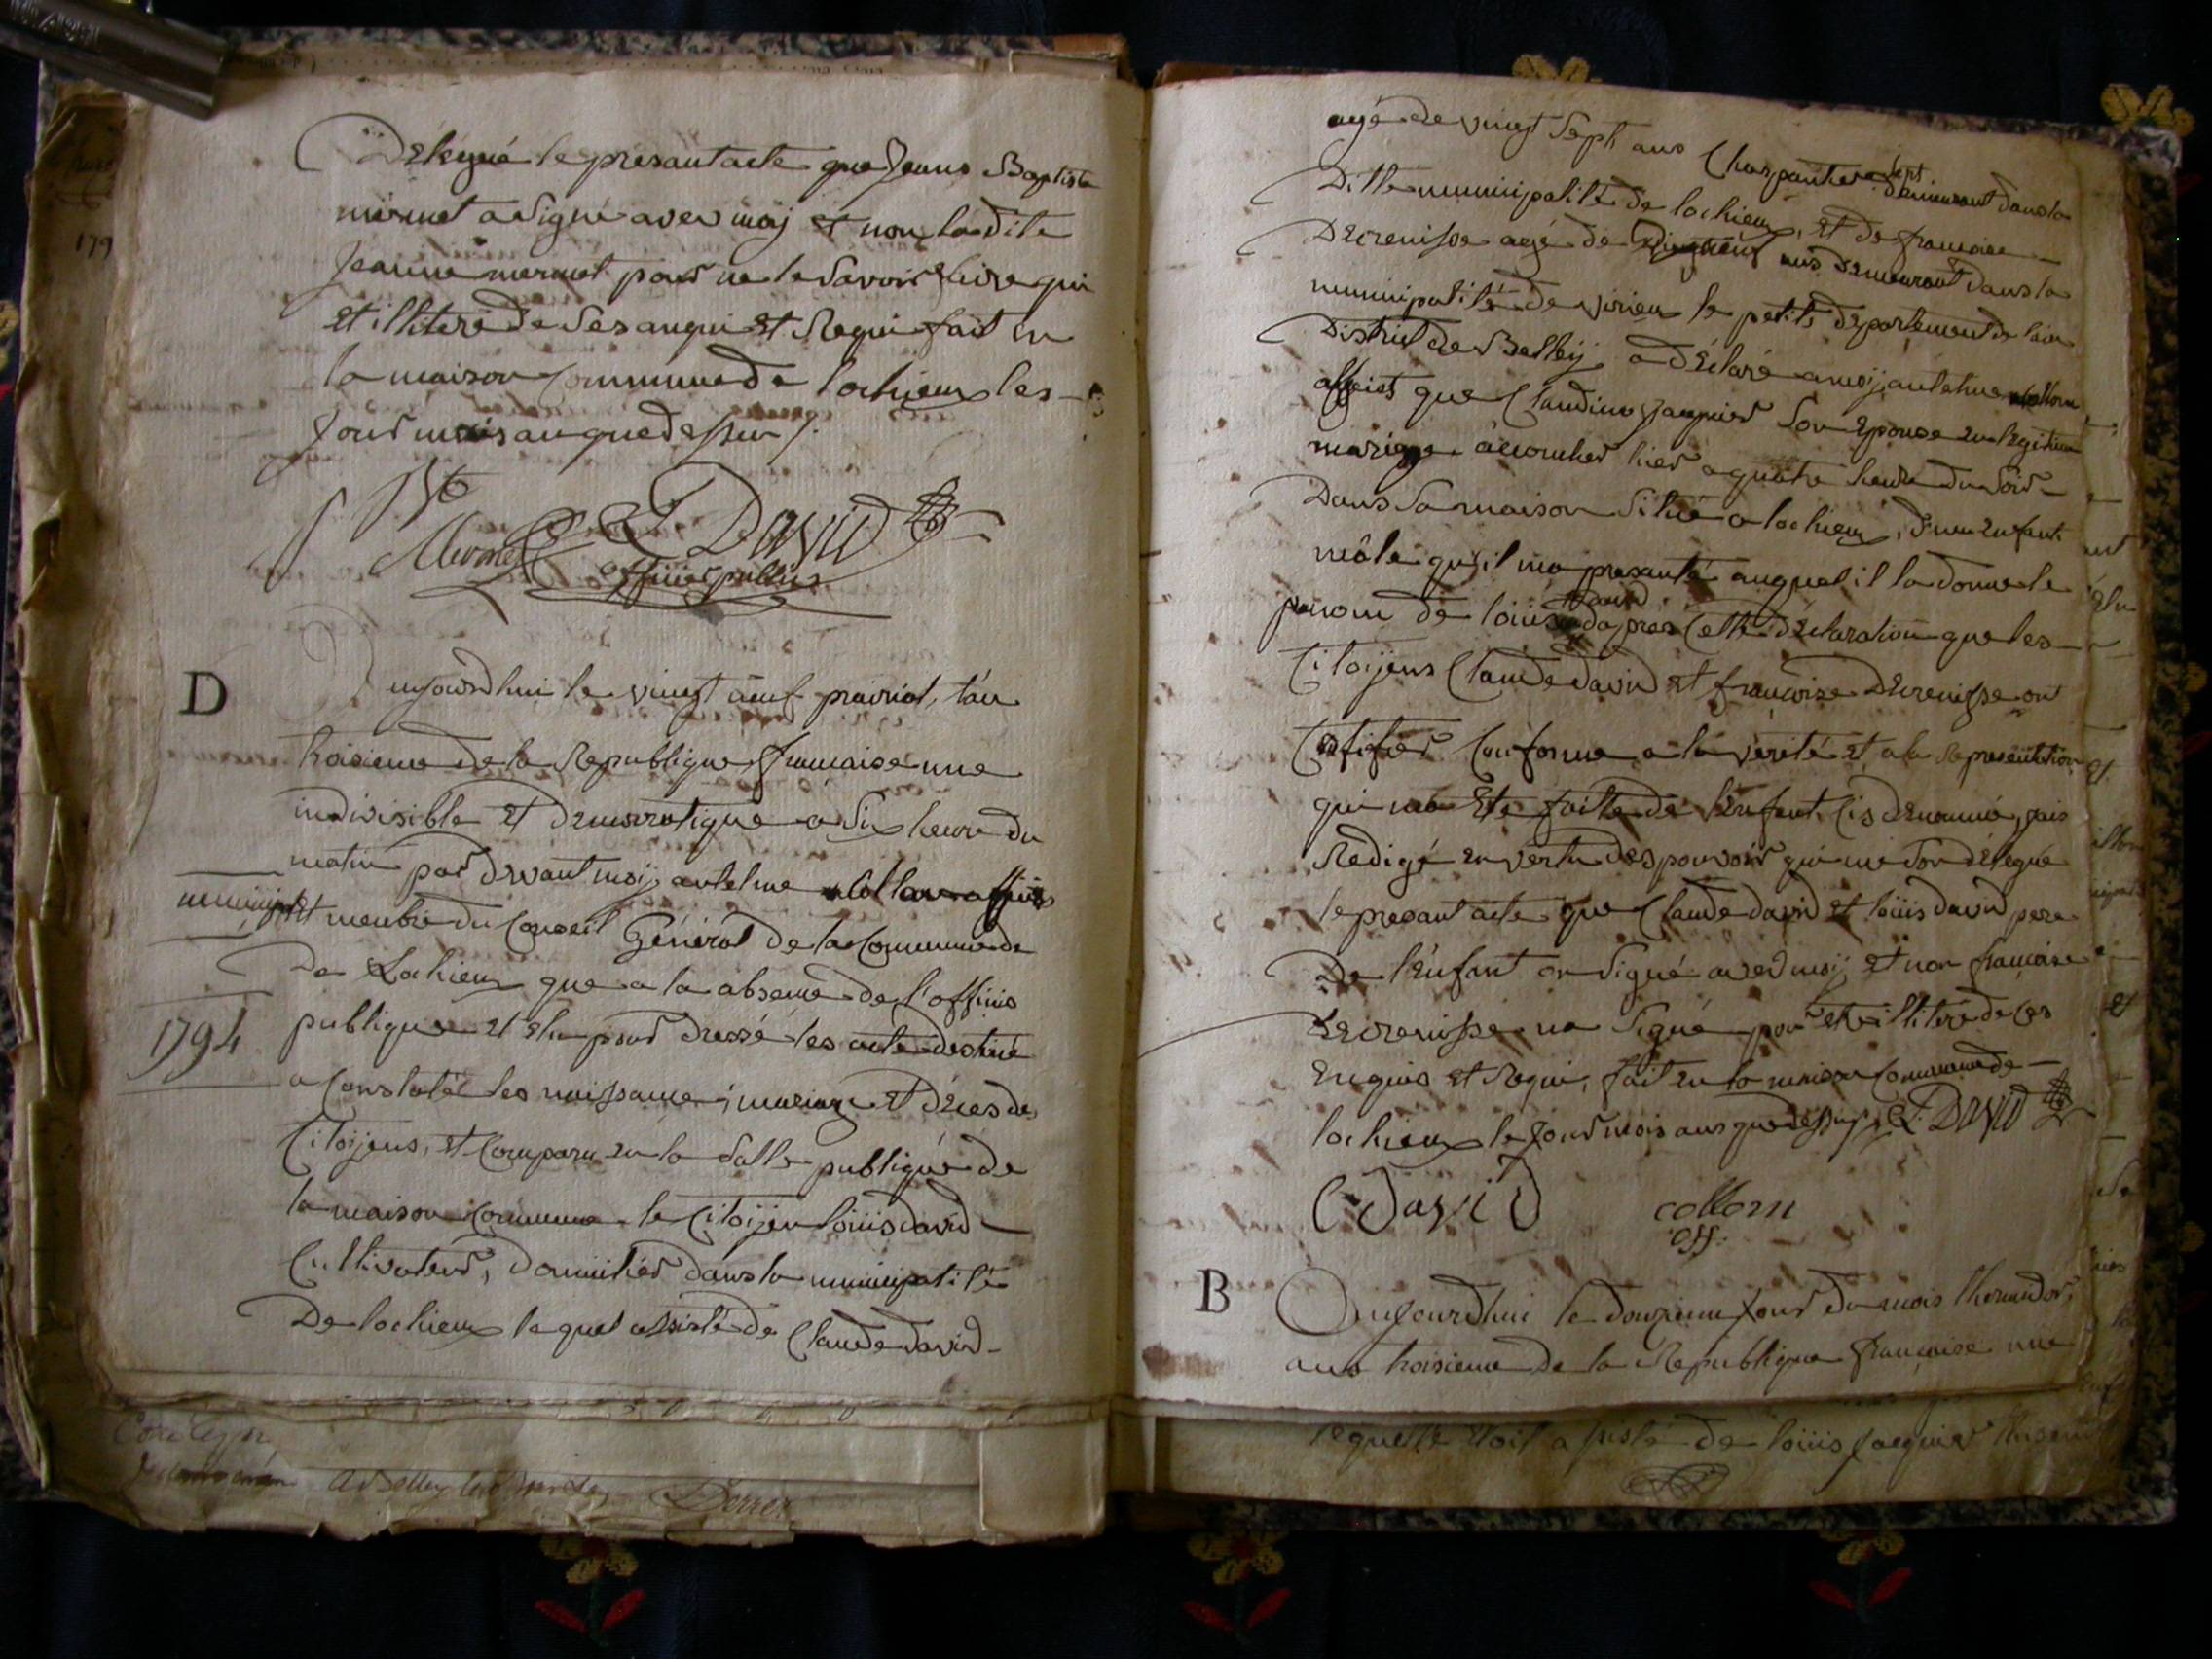 Délégué le presant acte que Jeans Baptiste
mermet a Signé avec moij et non la dite
Jeanne mermet pour ne le Savoir faire qui
et illiteré de Ses anqui et Requi fait en
la maison Commune de lochieux les
Jour mois an que dessur /.
J Bte
Mermet David
officier public
D
aujourdhui le vingt neuf prairial, l'an
troisieme de la Republique francaise une
indivisible et Democratique a Six heure du
matin par devant moij antelme Collom officier
municipal et menbre du Conseil Général de la Commune de
De Lochieux que a la absence de l'officie
1794
publique et elu pour dressé les acte destiné
a Constaté les naissance, mariage et déces des
Citoijens, et Comparu en la Salle publique de
la maison Commune le Citoijen loüis david
Cultivateur, domicilier dans la municipalité
De lochieux le quel assisté de Claude david
179
agé de vingt Sept ans Charpantier demeurant dans la
Ditte municipalité de lochieux, et de francoise
Decrenisse agé de ans Demeurant dans la
municipalité de virieux le petit, département de lain
District de Belleij a déclaré a moij antelme Collom
officier que Claudine Jaquier Son Epouse en legitime
mariage acoucher hier a quatre heure du Soir
Dans Sa maison Situé a lochieux, d'un enfant
mâle qu'il ma presanté auquel il la donné le
prenom de loüis david
dapres Cette déclaration que les
Citoijens Claude david et francoise Decrenisse ont
Certifier Conforme a la verité et a la Representation
qui ma Eté faitte de l'enfant Cis denommé, jais
Redigé en vertu des pouvoir qui me Son délegué
le presant acte que Claude david et loüis david pere
De l'énfant on Signé avec moij et non francoise
Decrenisse na Signé pour etre illiteré de Ces
Enquis et Requi, fait en la maison Commune de
lochieux le Jour mois ans que dessus L. David
C David collom
off:
B
Aujourdhui le douzieme Jour du mois thermidor,
ans troisieme de la Republique francoise une
lequelle Etoit assisté de loüis Jacquier